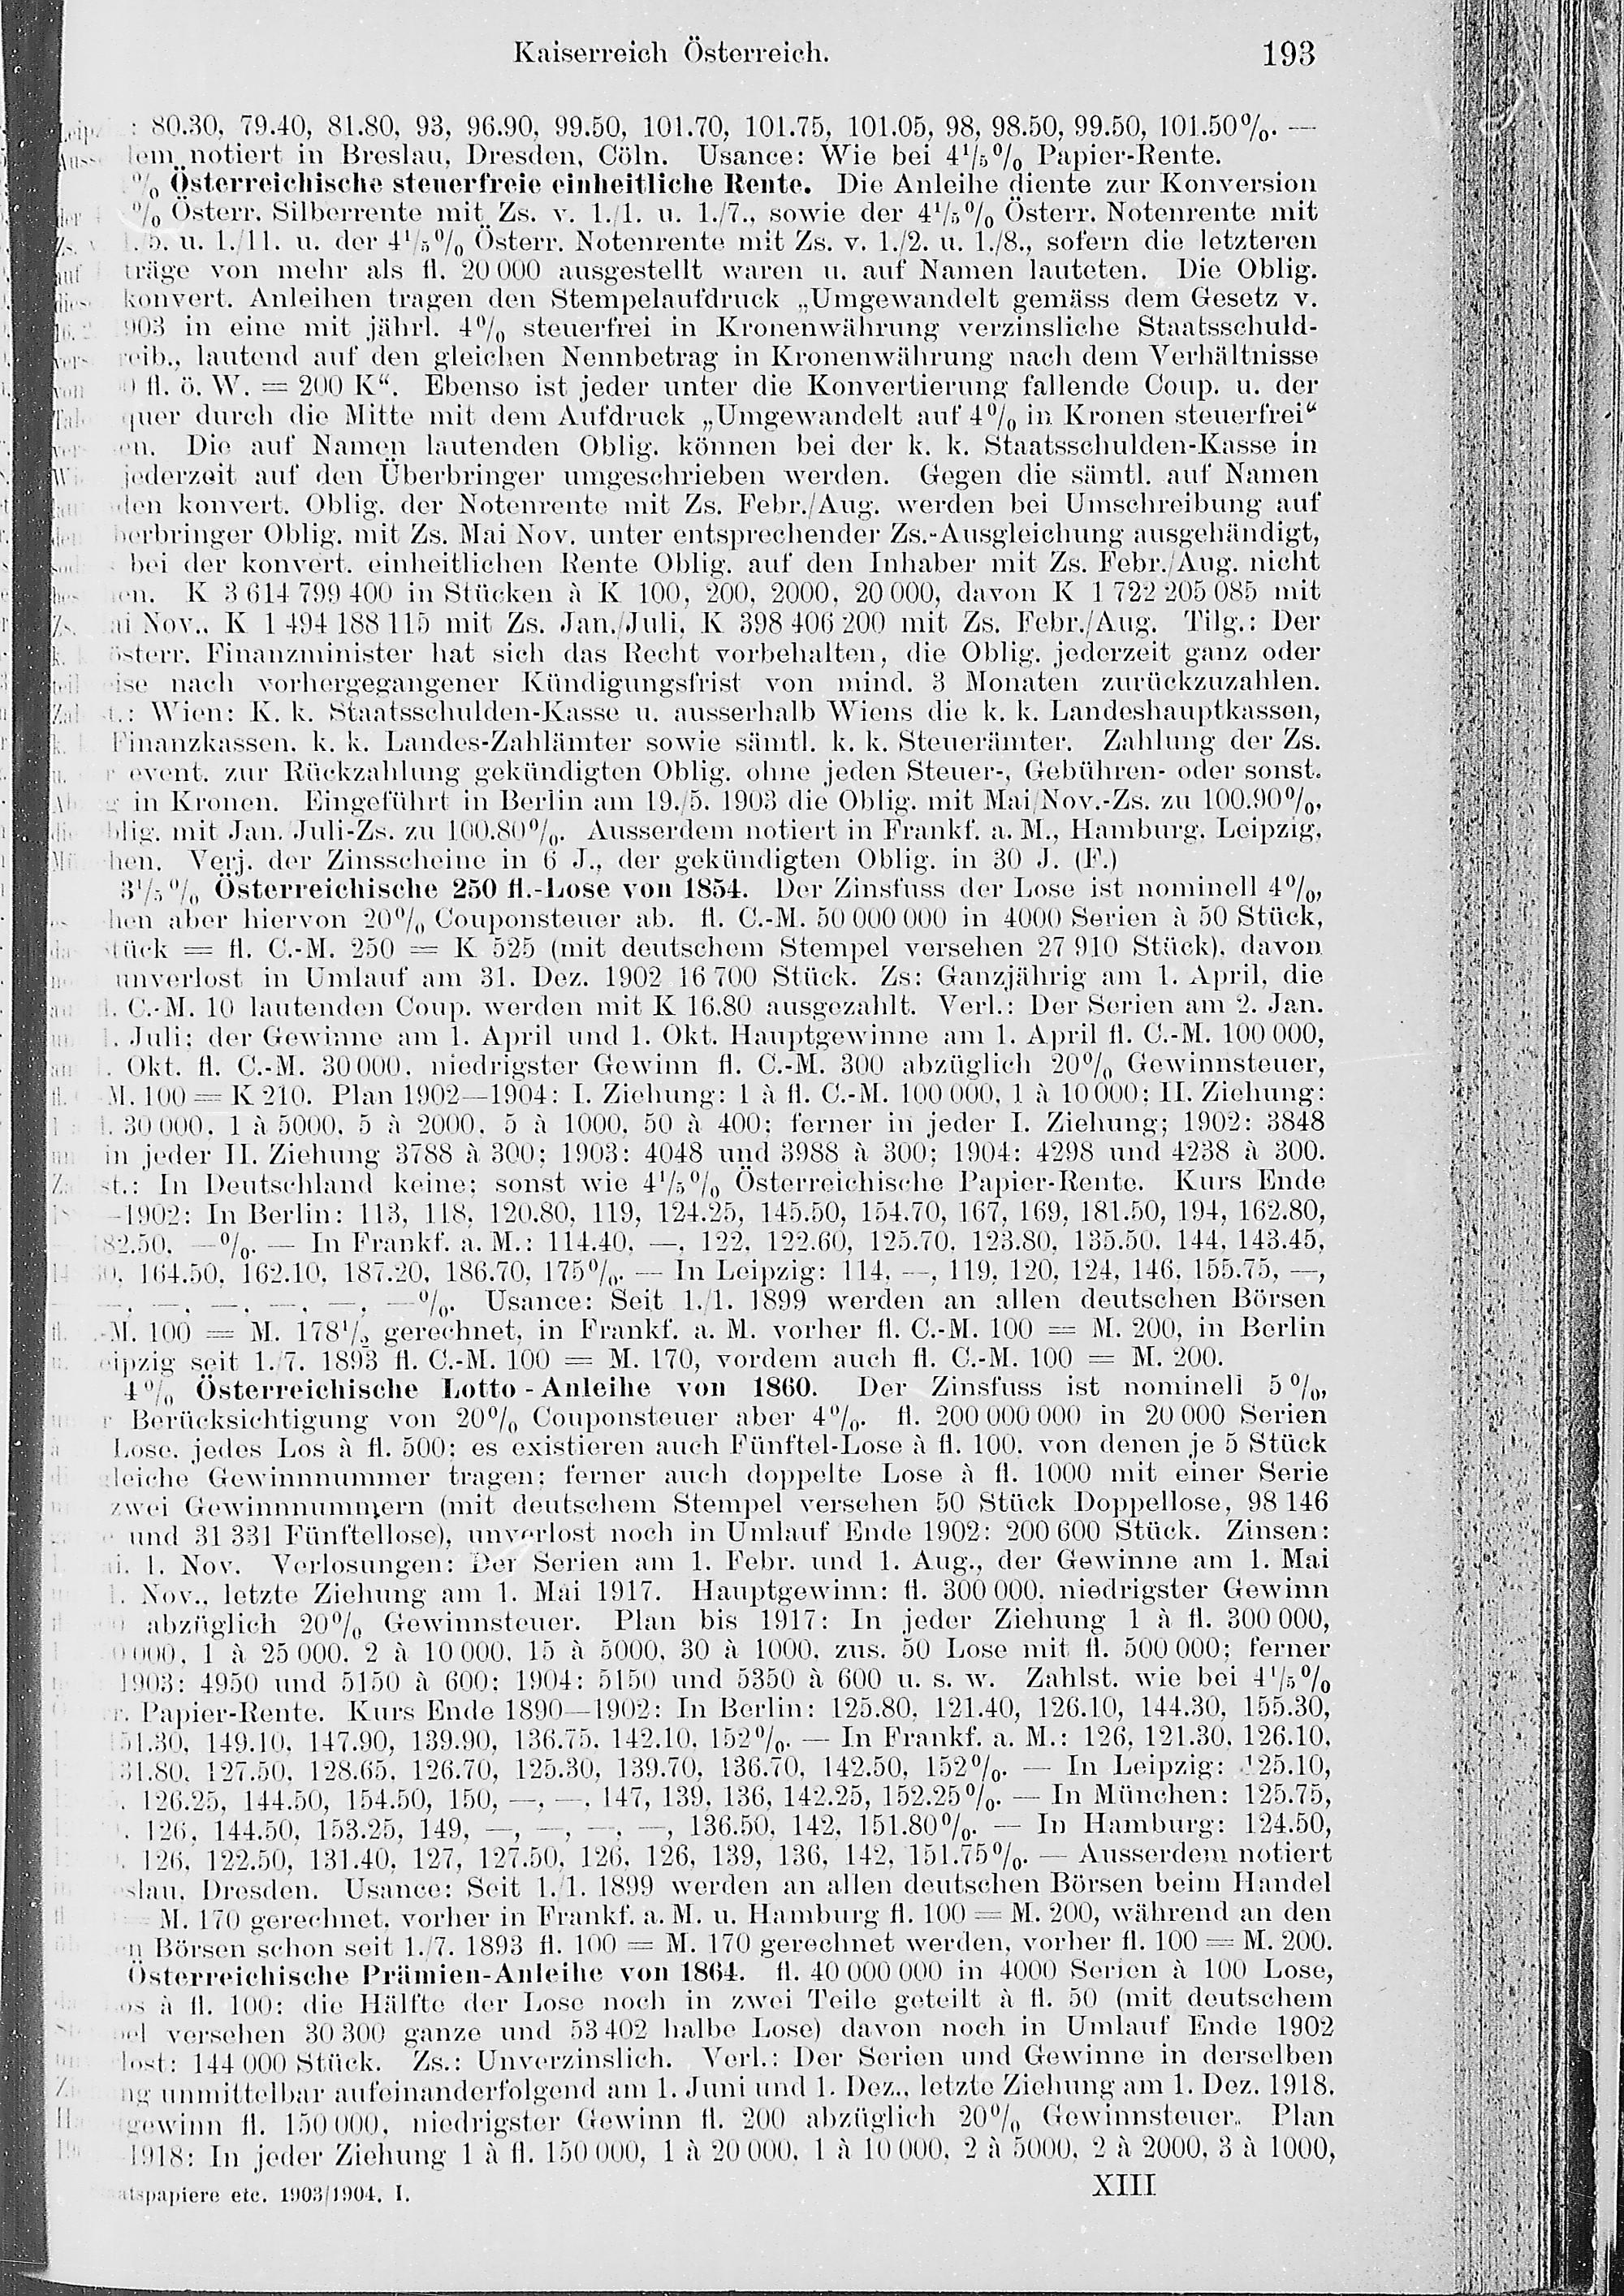 Kaiserreich Österreich. 193
: 80.30, 79.40, 81.80, 93, 96.90, 99.50, 101.70, 101.75, 101.05, 98, 98.50, 99.50, 101.50%. —
dem notiert in Breslau, Dresden, Cöln. Usance: Wie bei 4¹/₅% Papier-Rente.
% Österreichische steuerfreie einheitliche Rente. Die Anleihe diente zur Konversion
% Österr. Silberrente mit Zs. v. 1./1. u. 1./7., sowie der 4¹/₅% Österr. Notenrente mit
1./5. u. 1./11. u. der 4¹/₅% Österr. Notenrente mit Zs. v. 1./2. u. 1./8., sofern die letzteren
träge von mehr als fl. 20 000 ausgestellt waren u. auf Namen lauteten. Die Oblig.
konvert. Anleihen tragen den Stempelaufdruck „Umgewandelt gemäss dem Gesetz v.
1903 in eine mit jährl. 4% steuerfrei in Kronenwährung verzinsliche Staatsschuld-
reib., lautend auf den gleichen Nennbetrag in Kronenwährung nach dem Verhältnisse
0 fl. ö. W. = 200 K“. Ebenso ist jeder unter die Konvertierung fallende Coup. u. der
quer durch die Mitte mit dem Aufdruck „Umgewandelt auf 4% in Kronen steuerfrei“
en. Die auf Namen lautenden Oblig. können bei der k. k. Staatsschulden-Kasse in
jederzeit auf den Überbringer umgeschrieben werden. Gegen die sämtl. auf Namen
den konvert. Oblig. der Notenrente mit Zs. Febr./Aug. werden bei Umschreibung auf
berbringer Oblig. mit Zs. Mai Nov. unter entsprechender Zs.-Ausgleichung ausgehändigt,
bei der konvert. einheitlichen Rente Oblig. auf den Inhaber mit Zs. Febr./Aug. nicht
en. K 3 614 799 400 in Stücken à K 100, 200, 2000, 20 000, davon K 1 722 205 085 mit
ai Nov., K 1 494 188 115 mit Zs. Jan./Juli, K 398 406 200 mit Zs. Febr./Aug. Tilg.: Der
österr. Finanzminister hat sich das Recht vorbehalten, die Oblig. jederzeit ganz oder
eise nach vorhergegangener Kündigungsfrist von mind. 3 Monaten zurückzuzahlen.
t.: Wien: K. k. Staatsschulden-Kasse u. ausserhalb Wiens die k. k. Landeshauptkassen,
Finanzkassen, k. k. Landes-Zahlämter sowie sämtl. k. k. Steuerämter. Zahlung der Zs.
r event. zur Rückzahlung gekündigten Oblig. ohne jeden Steuer-, Gebühren- oder sonst.
g in Kronen. Eingeführt in Berlin am 19./5. 1903 die Oblig. mit Mai/Nov.-Zs. zu 100.90%,
blig. mit Jan./Juli-Zs. zu 100.80%. Ausserdem notiert in Frankf. a. M., Hamburg, Leipzig,
hen. Verj. der Zinsscheine in 6 J., der gekündigten Oblig. in 30 J. (F.)
3¹/₅% Österreichische 250 fl.-Lose von 1854. Der Zinsfuss der Lose ist nominell 4%,
hen aber hiervon 20% Couponsteuer ab. fl. C.-M. 50 000 000 in 4000 Serien à 50 Stück,
tück = fl. C.-M. 250 = K 525 (mit deutschem Stempel versehen 27 910 Stück), davon
unverlost in Umlauf am 31. Dez. 1902 16 700 Stück. Zs: Ganzjährig am 1. April, die
. C.-M. 10 lautenden Coup. werden mit K 16.80 ausgezahlt. Verl.: Der Serien am 2. Jan.
1. Juli; der Gewinne am 1. April und 1. Okt. Hauptgewinne am 1. April fl. C.-M. 100 000,
. Okt. fl. C.-M. 30 000, niedrigster Gewinn fl. C.-M. 300 abzüglich 20% Gewinnsteuer,
M. 100 = K 210. Plan 1902—1904: I. Ziehung: 1 à fl. C.-M. 100 000, 1 à 10 000; II. Ziehung:
. 30 000, 1 à 5000, 5 à 2000, 5 à 1000, 50 à 400; ferner in jeder I. Ziehung; 1902: 3848
in jeder II. Ziehung 3788 à 300; 1903: 4048 und 3988 à 300; 1904: 4298 und 4238 à 300.
st.: In Deutschland keine; sonst wie 4¹/₅% Österreichische Papier-Rente. Kurs Ende
—1902: In Berlin: 113, 118, 120.80, 119, 124.25, 145.50, 154.70, 167, 169, 181.50, 194, 162.80,
182.50, —%. — In Frankf. a. M.: 114.40, —, 122, 122.60, 125.70, 123.80, 135.50, 144, 143.45,
164.50, 162.10, 187.20, 186.70, 175%. — In Leipzig: 114, —, 119, 120, 124, 146, 155.75, —,
—, —, —, —, —, —%. Usance: Seit 1./1. 1899 werden an allen deutschen Börsen
.-M. 100 = M. 178¹/₂ gerechnet, in Frankf. a. M. vorher fl. C.-M. 100 = M. 200, in Berlin
eipzig seit 1./7. 1893 fl. C.-M. 100 = M. 170, vordem auch fl. C.-M. 100 = M. 200.
4% Österreichische Lotto-Anleihe von 1860. Der Zinsfuss ist nominell 5%,
r Berücksichtigung von 20% Couponsteuer aber 4%. fl. 200 000 000 in 20 000 Serien
Lose, jedes Los à fl. 500; es existieren auch Fünftel-Lose à fl. 100, von denen je 5 Stück
gleiche Gewinnnummer tragen; ferner auch doppelte Lose à fl. 1000 mit einer Serie
zwei Gewinnnummern (mit deutschem Stempel versehen 50 Stück Doppellose, 98 146
und 31 331 Fünftellose), unverlost noch in Umlauf Ende 1902: 200 600 Stück. Zinsen:
ai. 1. Nov. Verlosungen: Der Serien am 1. Febr. und 1. Aug., der Gewinne am 1. Mai
1. Nov., letzte Ziehung am 1. Mai 1917. Hauptgewinn: fl. 300 000, niedrigster Gewinn
abzüglich 20% Gewinnsteuer. Plan bis 1917: In jeder Ziehung 1 à fl. 300 000,
0 000, 1 à 25 000, 2 à 10 000, 15 à 5000, 30 à 1000, zus. 50 Lose mit fl. 500 000; ferner
1903: 4950 und 5150 à 600; 1904: 5150 und 5350 à 600 u. s. w. Zahlst. wie bei 4¹/₅%
r. Papier-Rente. Kurs Ende 1890—1902: In Berlin: 125.80, 121.40, 126.10, 144.30, 155.30,
151.30, 149.10, 147.90, 139.90, 136.75, 142.10, 152%. — In Frankf. a. M.: 126, 121.30, 126.10,
131.80, 127.50, 128.65, 126.70, 125.30, 139.70, 136.70, 142.50, 152%. — In Leipzig: 125.10,
. 126.25, 144.50, 154.50, 150, —, —, 147, 139, 136, 142.25, 152.25%. — In München: 125.75,
. 126, 144.50, 153.25, 149, —, —, —, —, 136.50, 142, 151.80%. — In Hamburg: 124.50,
. 126, 122.50, 131.40, 127, 127.50, 126, 126, 139, 136, 142, 151.75%. — Ausserdem notiert
eslau, Dresden. Usance: Seit 1./1. 1899 werden an allen deutschen Börsen beim Handel
= M. 170 gerechnet, vorher in Frankf. a. M. u. Hamburg fl. 100 = M. 200, während an den
en Börsen schon seit 1./7. 1893 fl. 100 = M. 170 gerechnet werden, vorher fl. 100 = M. 200.
Österreichische Prämien-Anleihe von 1864. fl. 40 000 000 in 4000 Serien à 100 Lose,
os à fl. 100; die Hälfte der Lose noch in zwei Teile geteilt à fl. 50 (mit deutschem
pel versehen 30 300 ganze und 53 402 halbe Lose) davon noch in Umlauf Ende 1902
lost: 144 000 Stück. Zs.: Unverzinslich. Verl.: Der Serien und Gewinne in derselben
ng unmittelbar aufeinanderfolgend am 1. Juni und 1. Dez., letzte Ziehung am 1. Dez. 1918.
gewinn fl. 150 000, niedrigster Gewinn fl. 200 abzüglich 20% Gewinnsteuer. Plan
1918: In jeder Ziehung 1 à fl. 150 000, 1 à 20 000, 1 à 10 000, 2 à 5000, 2 à 2000, 3 à 1000,
atspapiere etc. 1903/1904. I. XIII